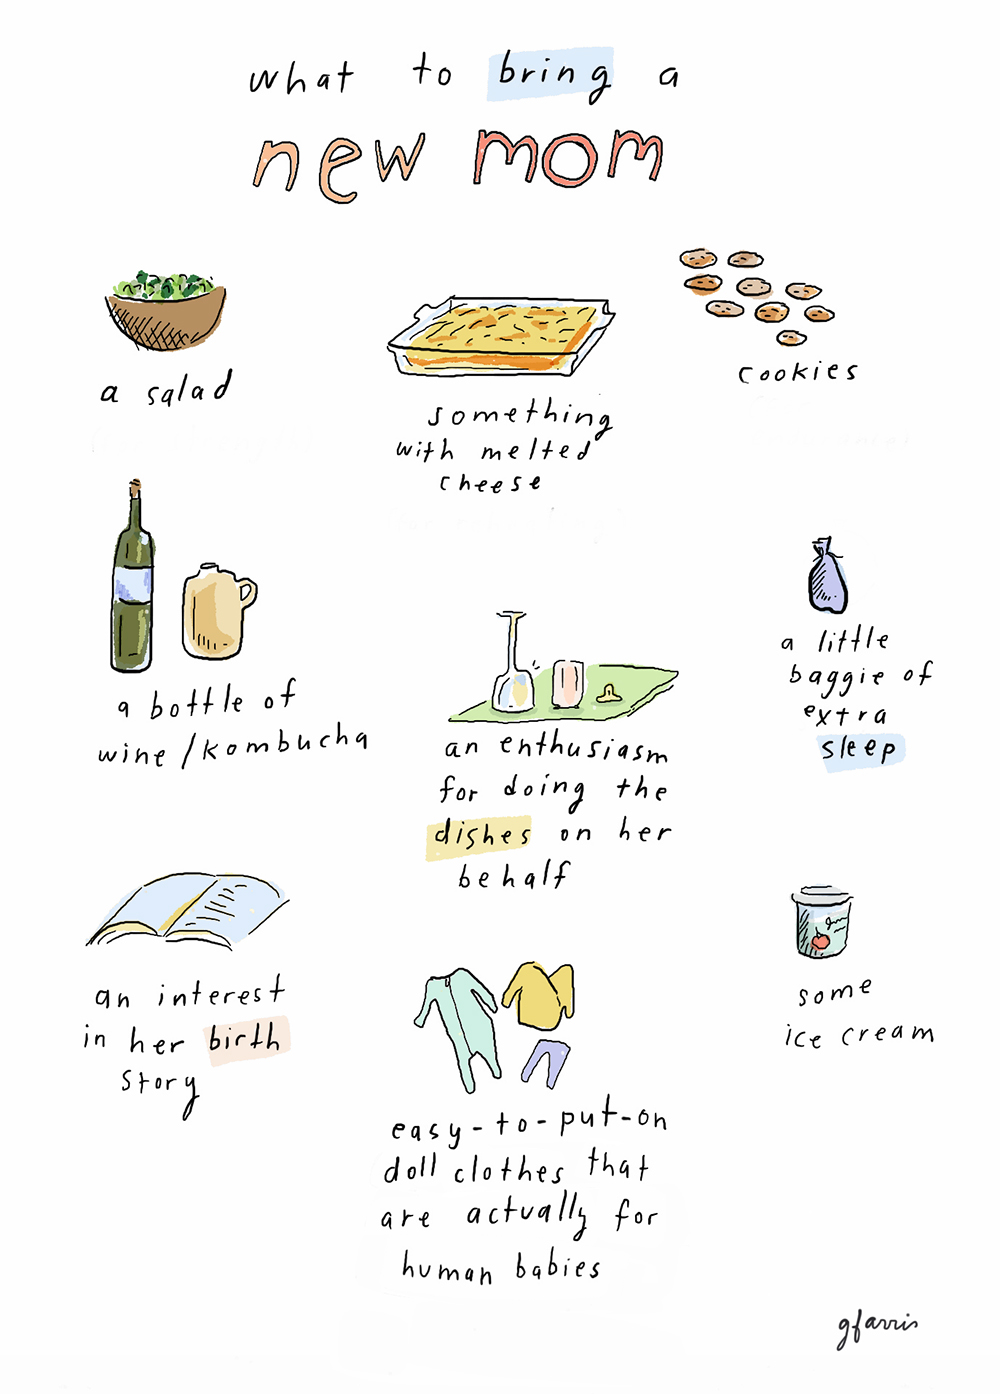 what to bring a
new mom
a salad
something
with melted
cheese
cookies
a bottle of
wine/kombucha
an enthusiasm
for doing the
dishes on her
behalf
a little
baggie of
extra
sleep
an interest
in her birth
story
easy-to-put-on
doll clothes that
are actually for
human babies
some
ice cream
gfarris